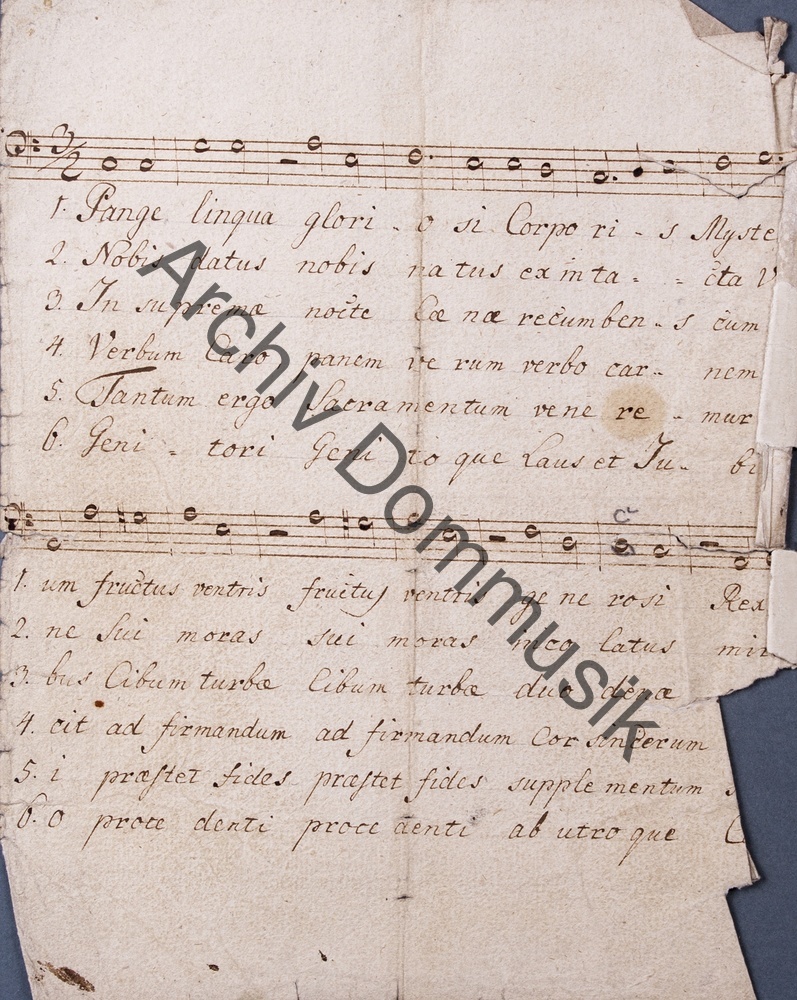 3/2
1. Pange lingua glori - o si Corpo ri - s Myste
2. Nobis datus nobis na tus ex inta - - cta V
3. In supremæ nocte Cœ næ recumben - s cum
4. Verbum Caro panem ve rum verbo car - nem
5. Tantum ergo Sacramentum vene re - mur
6. Geni - tori Geni to que Laus et Ju - bi
1. um fructus ventris fructus ventris ge ne rosi Rex
2. ne sui moras sui moras inco latus mir
3. bus Cibum turbæ Cibum turbæ duo denæ
4. cit ad firmandum ad firmandum Cor sincerum
5. i præstet fides præstet fides supple mentum s
6. o proce denti proce denti ab utro que
Archiv Dommusik